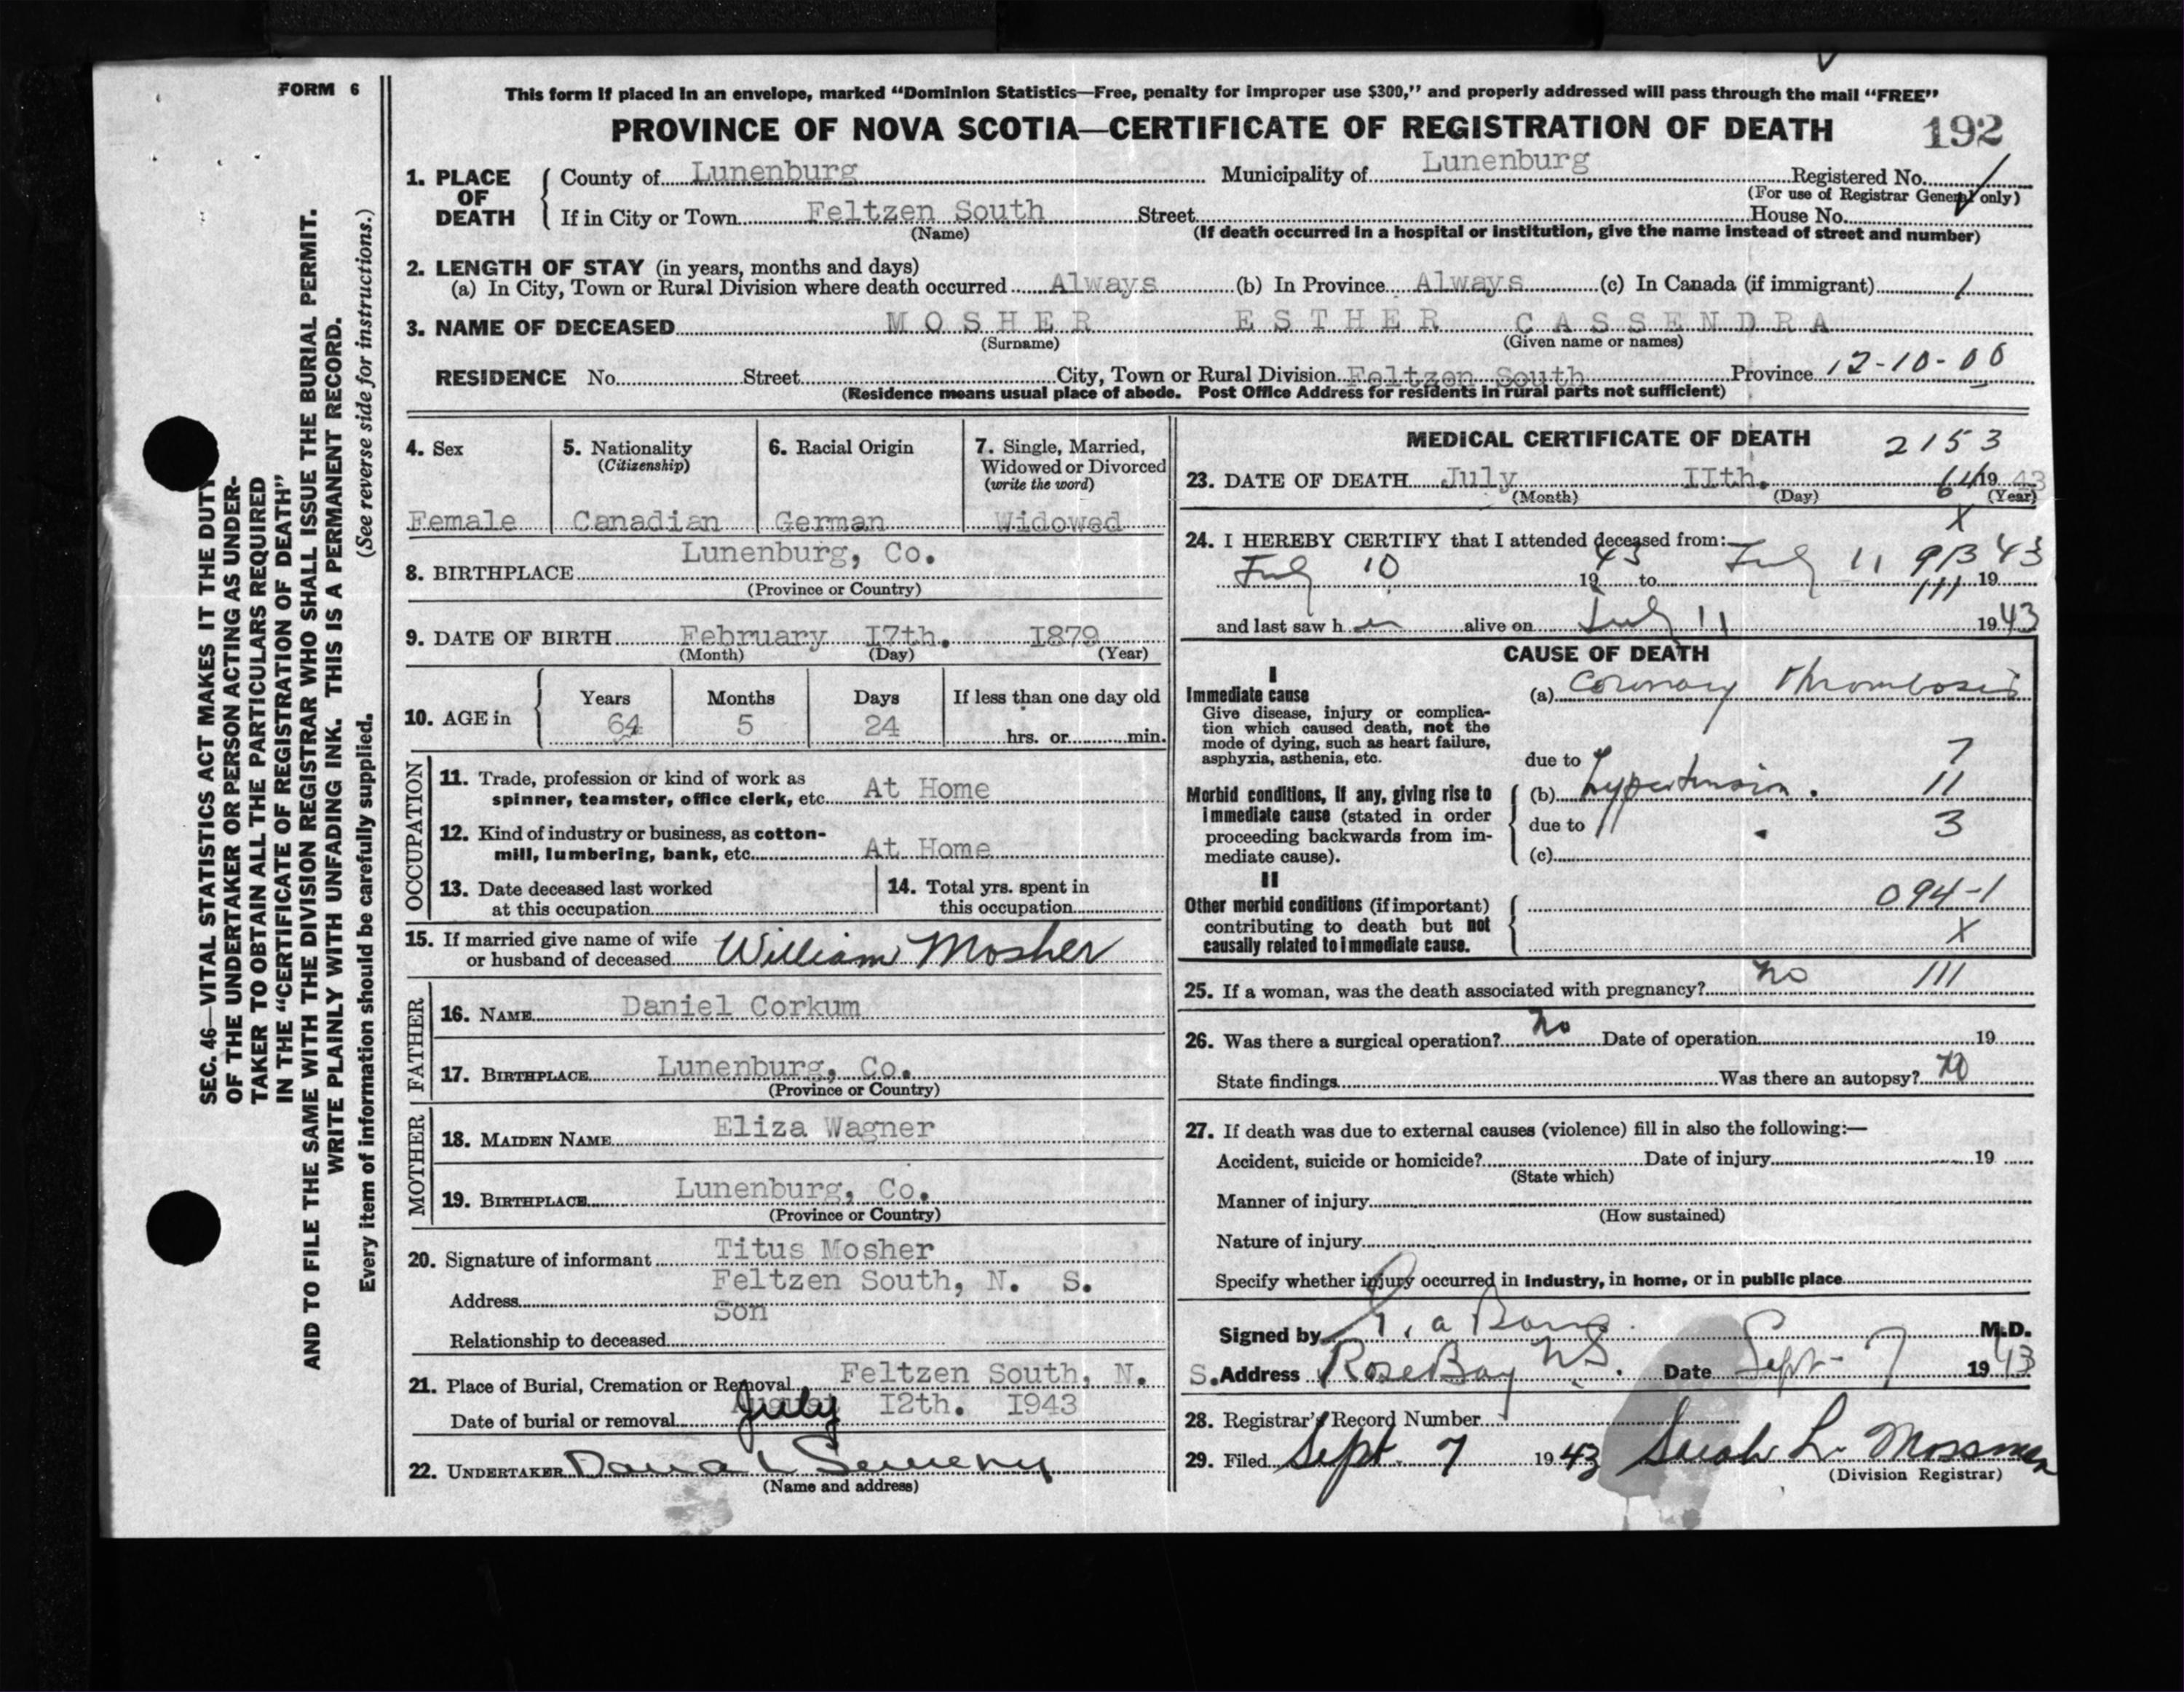 FORM 6
This form if placed in an envelope, marked "Dominion Statistics—Free, penalty for improper use $300," and properly addressed will pass through the mail "FREE"
PROVINCE OF NOVA SCOTIA—CERTIFICATE OF REGISTRATION OF DEATH 192
1. PLACE OF DEATH County of Lunenburg Municipality of Lunenburg Registered No.
(For use of Registrar General only)
If in City or Town Feltzen South Street House No.
(Name) (If death occurred in a hospital or institution, give the name instead of street and number)
2. LENGTH OF STAY (in years, months and days)
(a) In City, Town or Rural Division where death occurred Always (b) In Province Always (c) In Canada (if immigrant) /
3. NAME OF DECEASED MOSHER ESTHER CASSENDRA
(Surname) (Given name or names)
RESIDENCE No. Street City, Town or Rural Division Feltzen South Province 12-10-00
(Residence means usual place of abode. Post Office Address for residents in rural parts not sufficient)
4. Sex 5. Nationality 6. Racial Origin 7. Single, Married,
(Citizenship) Widowed or Divorced
(write the word)
Female Canadian German Widowed
8. BIRTHPLACE Lunenburg, Co.
(Province or Country)
9. DATE OF BIRTH February I7th. I879
(Month) (Day) (Year)
10. AGE in Years Months Days If less than one day old
64 5 24 hrs. or min.
OCCUPATION
11. Trade, profession or kind of work as
spinner, teamster, office clerk, etc. At Home
12. Kind of industry or business, as cotton-
mill, lumbering, bank, etc. At Home
13. Date deceased last worked
at this occupation
14. Total yrs. spent in
this occupation
15. If married give name of wife
or husband of deceased William Mosher
FATHER
16. NAME Daniel Corkum
17. BIRTHPLACE Lunenburg, Co.
(Province or Country)
MOTHER
18. MAIDEN NAME Eliza Wagner
19. BIRTHPLACE Lunenburg, Co.
(Province or Country)
20. Signature of informant Titus Mosher
Address Feltzen South, N. S.
Relationship to deceased Son
21. Place of Burial, Cremation or Removal Feltzen South, N. S.
Date of burial or removal July I2th. I943
22. UNDERTAKER
(Name and address)
MEDICAL CERTIFICATE OF DEATH 2153
23. DATE OF DEATH July IIth. 64 1943
(Month) (Day) (Year)
X
24. I HEREBY CERTIFY that I attended deceased from:
July 10 1943 to July 11 93 1943
111
and last saw her alive on July 11 1943
CAUSE OF DEATH
I
Immediate cause (a) Coronary Thrombosis
Give disease, injury or complica-
tion which caused death, not the
mode of dying, such as heart failure,
asphyxia, asthenia, etc.
due to 7
Morbid conditions, if any, giving rise to (b) hypertension. 11
immediate cause (stated in order due to 3
proceeding backwards from im-
mediate cause). (c)
II
Other morbid conditions (if important) 094-1
contributing to death but not
causally related to immediate cause. X
25. If a woman, was the death associated with pregnancy? no 111
26. Was there a surgical operation? no Date of operation 19
State findings Was there an autopsy? no
27. If death was due to external causes (violence) fill in also the following:—
Accident, suicide or homicide? Date of injury 19
(State which)
Manner of injury
(How sustained)
Nature of injury
Specify whether injury occurred in industry, in home, or in public place
Signed by M.D.
Address Rose Bay N.S. Date Sept- 7 1943
28. Registrar's Record Number
29. Filed Sept. 7 1943 Sarah L. Mossman
(Division Registrar)
SEC. 46—VITAL STATISTICS ACT MAKES IT THE DUTY
OF THE UNDERTAKER OR PERSON ACTING AS UNDER-
TAKER TO OBTAIN ALL THE PARTICULARS REQUIRED
IN THE "CERTIFICATE OF REGISTRATION OF DEATH"
AND TO FILE THE SAME WITH THE DIVISION REGISTRAR WHO SHALL ISSUE THE BURIAL PERMIT.
WRITE PLAINLY WITH UNFADING INK. THIS IS A PERMANENT RECORD.
Every item of information should be carefully supplied. (See reverse side for instructions.)